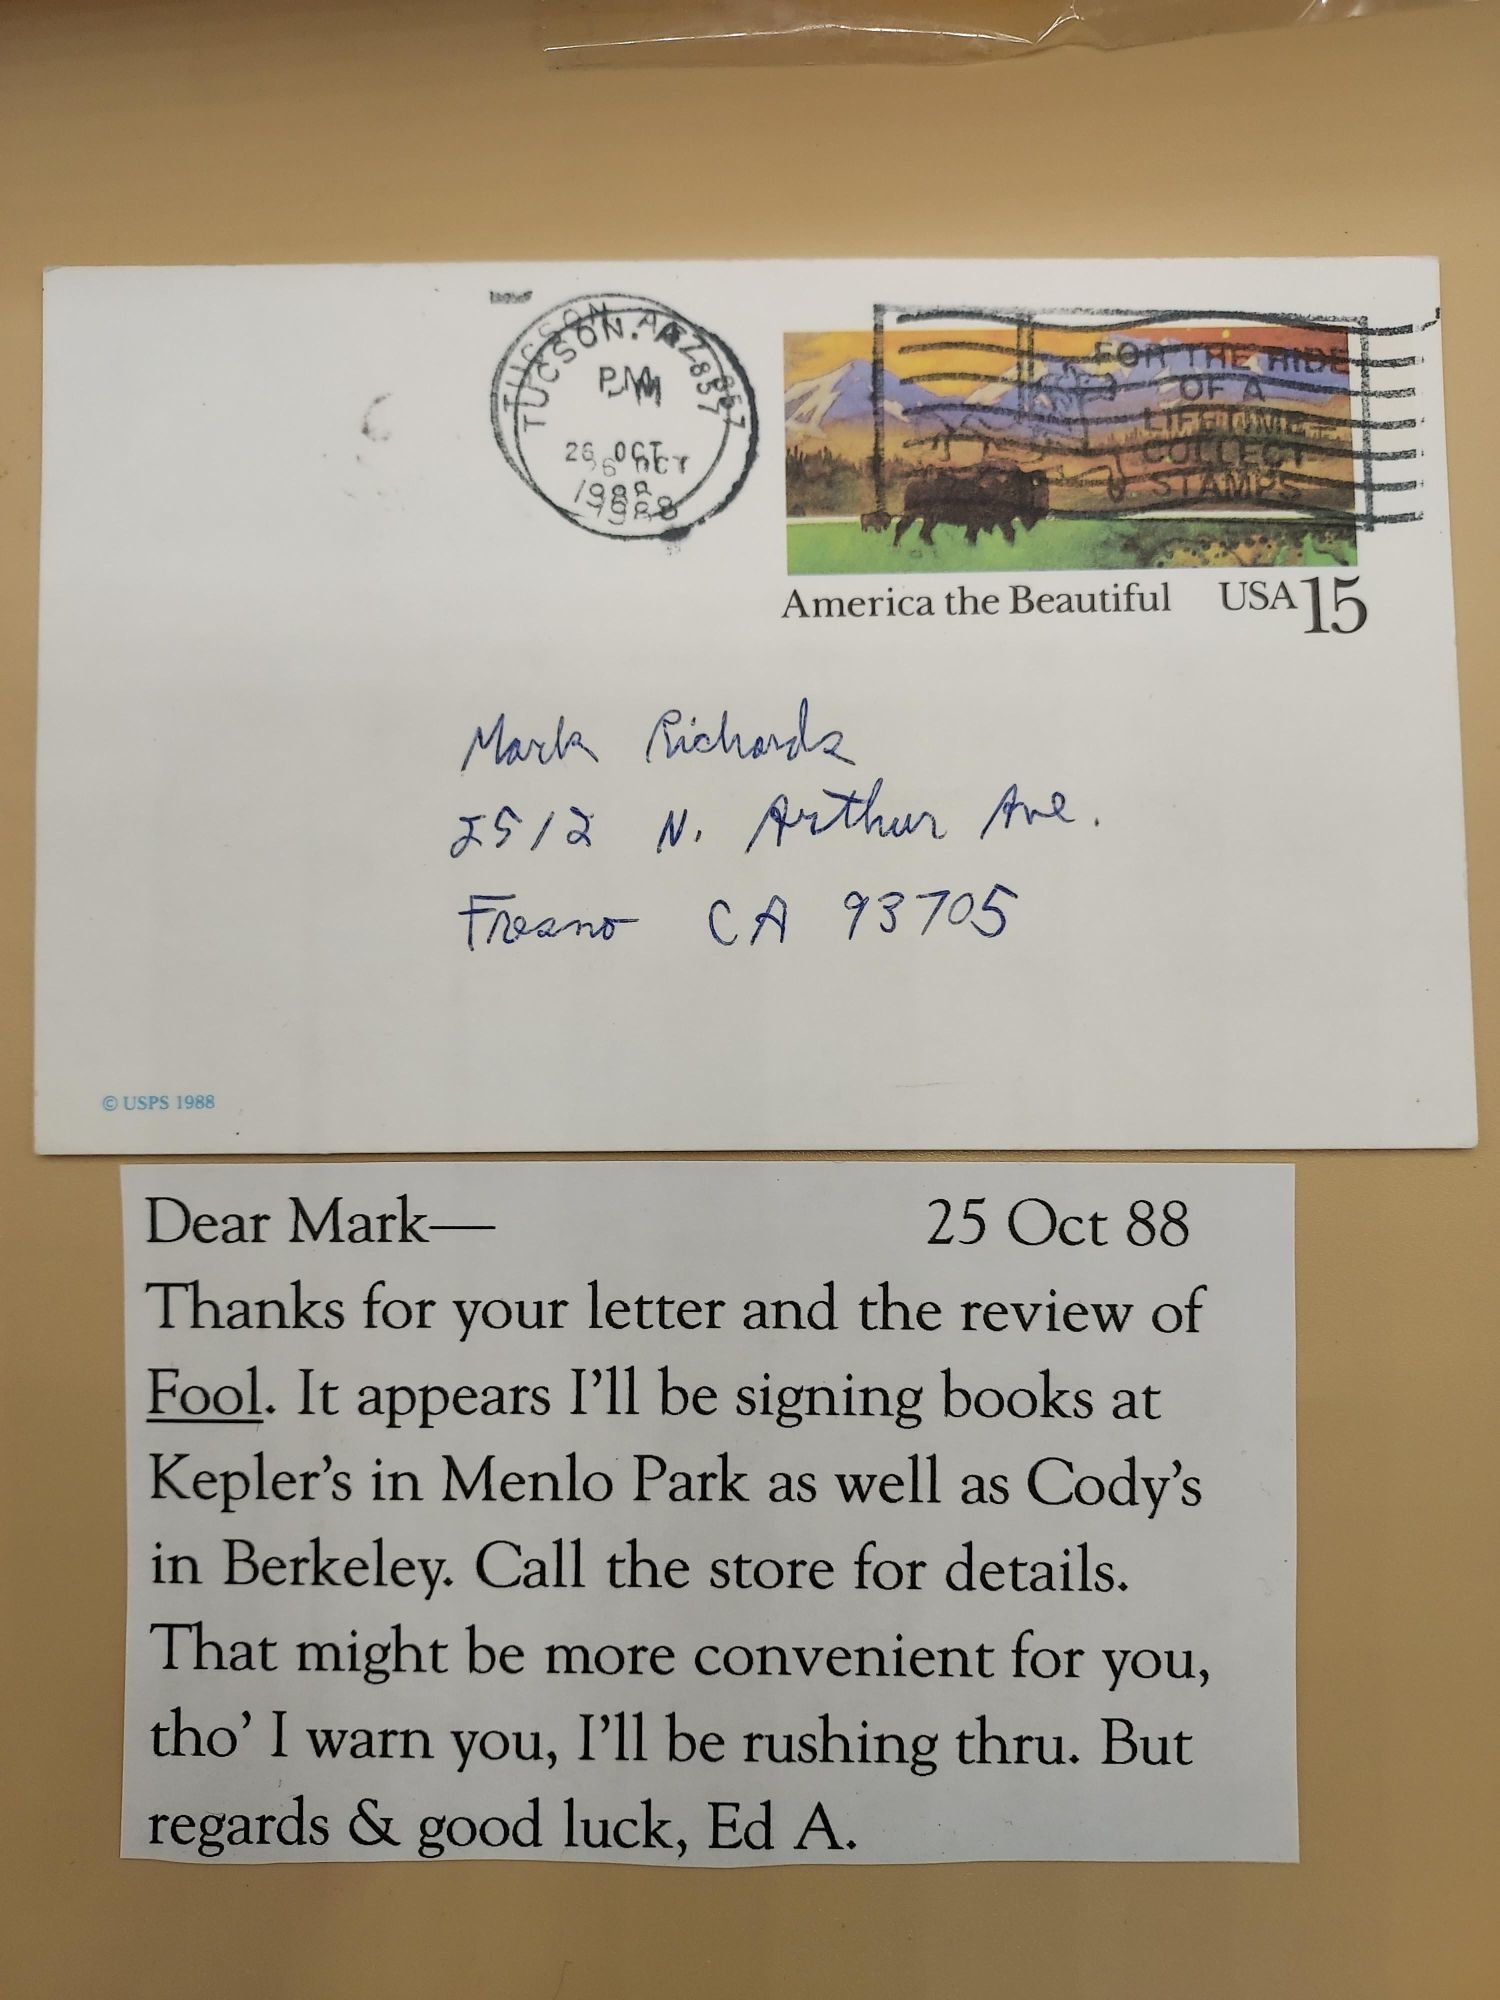 TUCSON, AZ 857
PM
26 OCT
1988
FOR THE RIDE
OF A
LIFETIME
COLLECT
STAMPS
America the Beautiful USA 15
Mark Richards
2512 N. Arthur Ave.
Fresno CA 93705
© USPS 1988
Dear Mark— 25 Oct 88
Thanks for your letter and the review of
Fool. It appears I'll be signing books at
Kepler's in Menlo Park as well as Cody's
in Berkeley. Call the store for details.
That might be more convenient for you,
tho' I warn you, I'll be rushing thru. But
regards & good luck, Ed A.